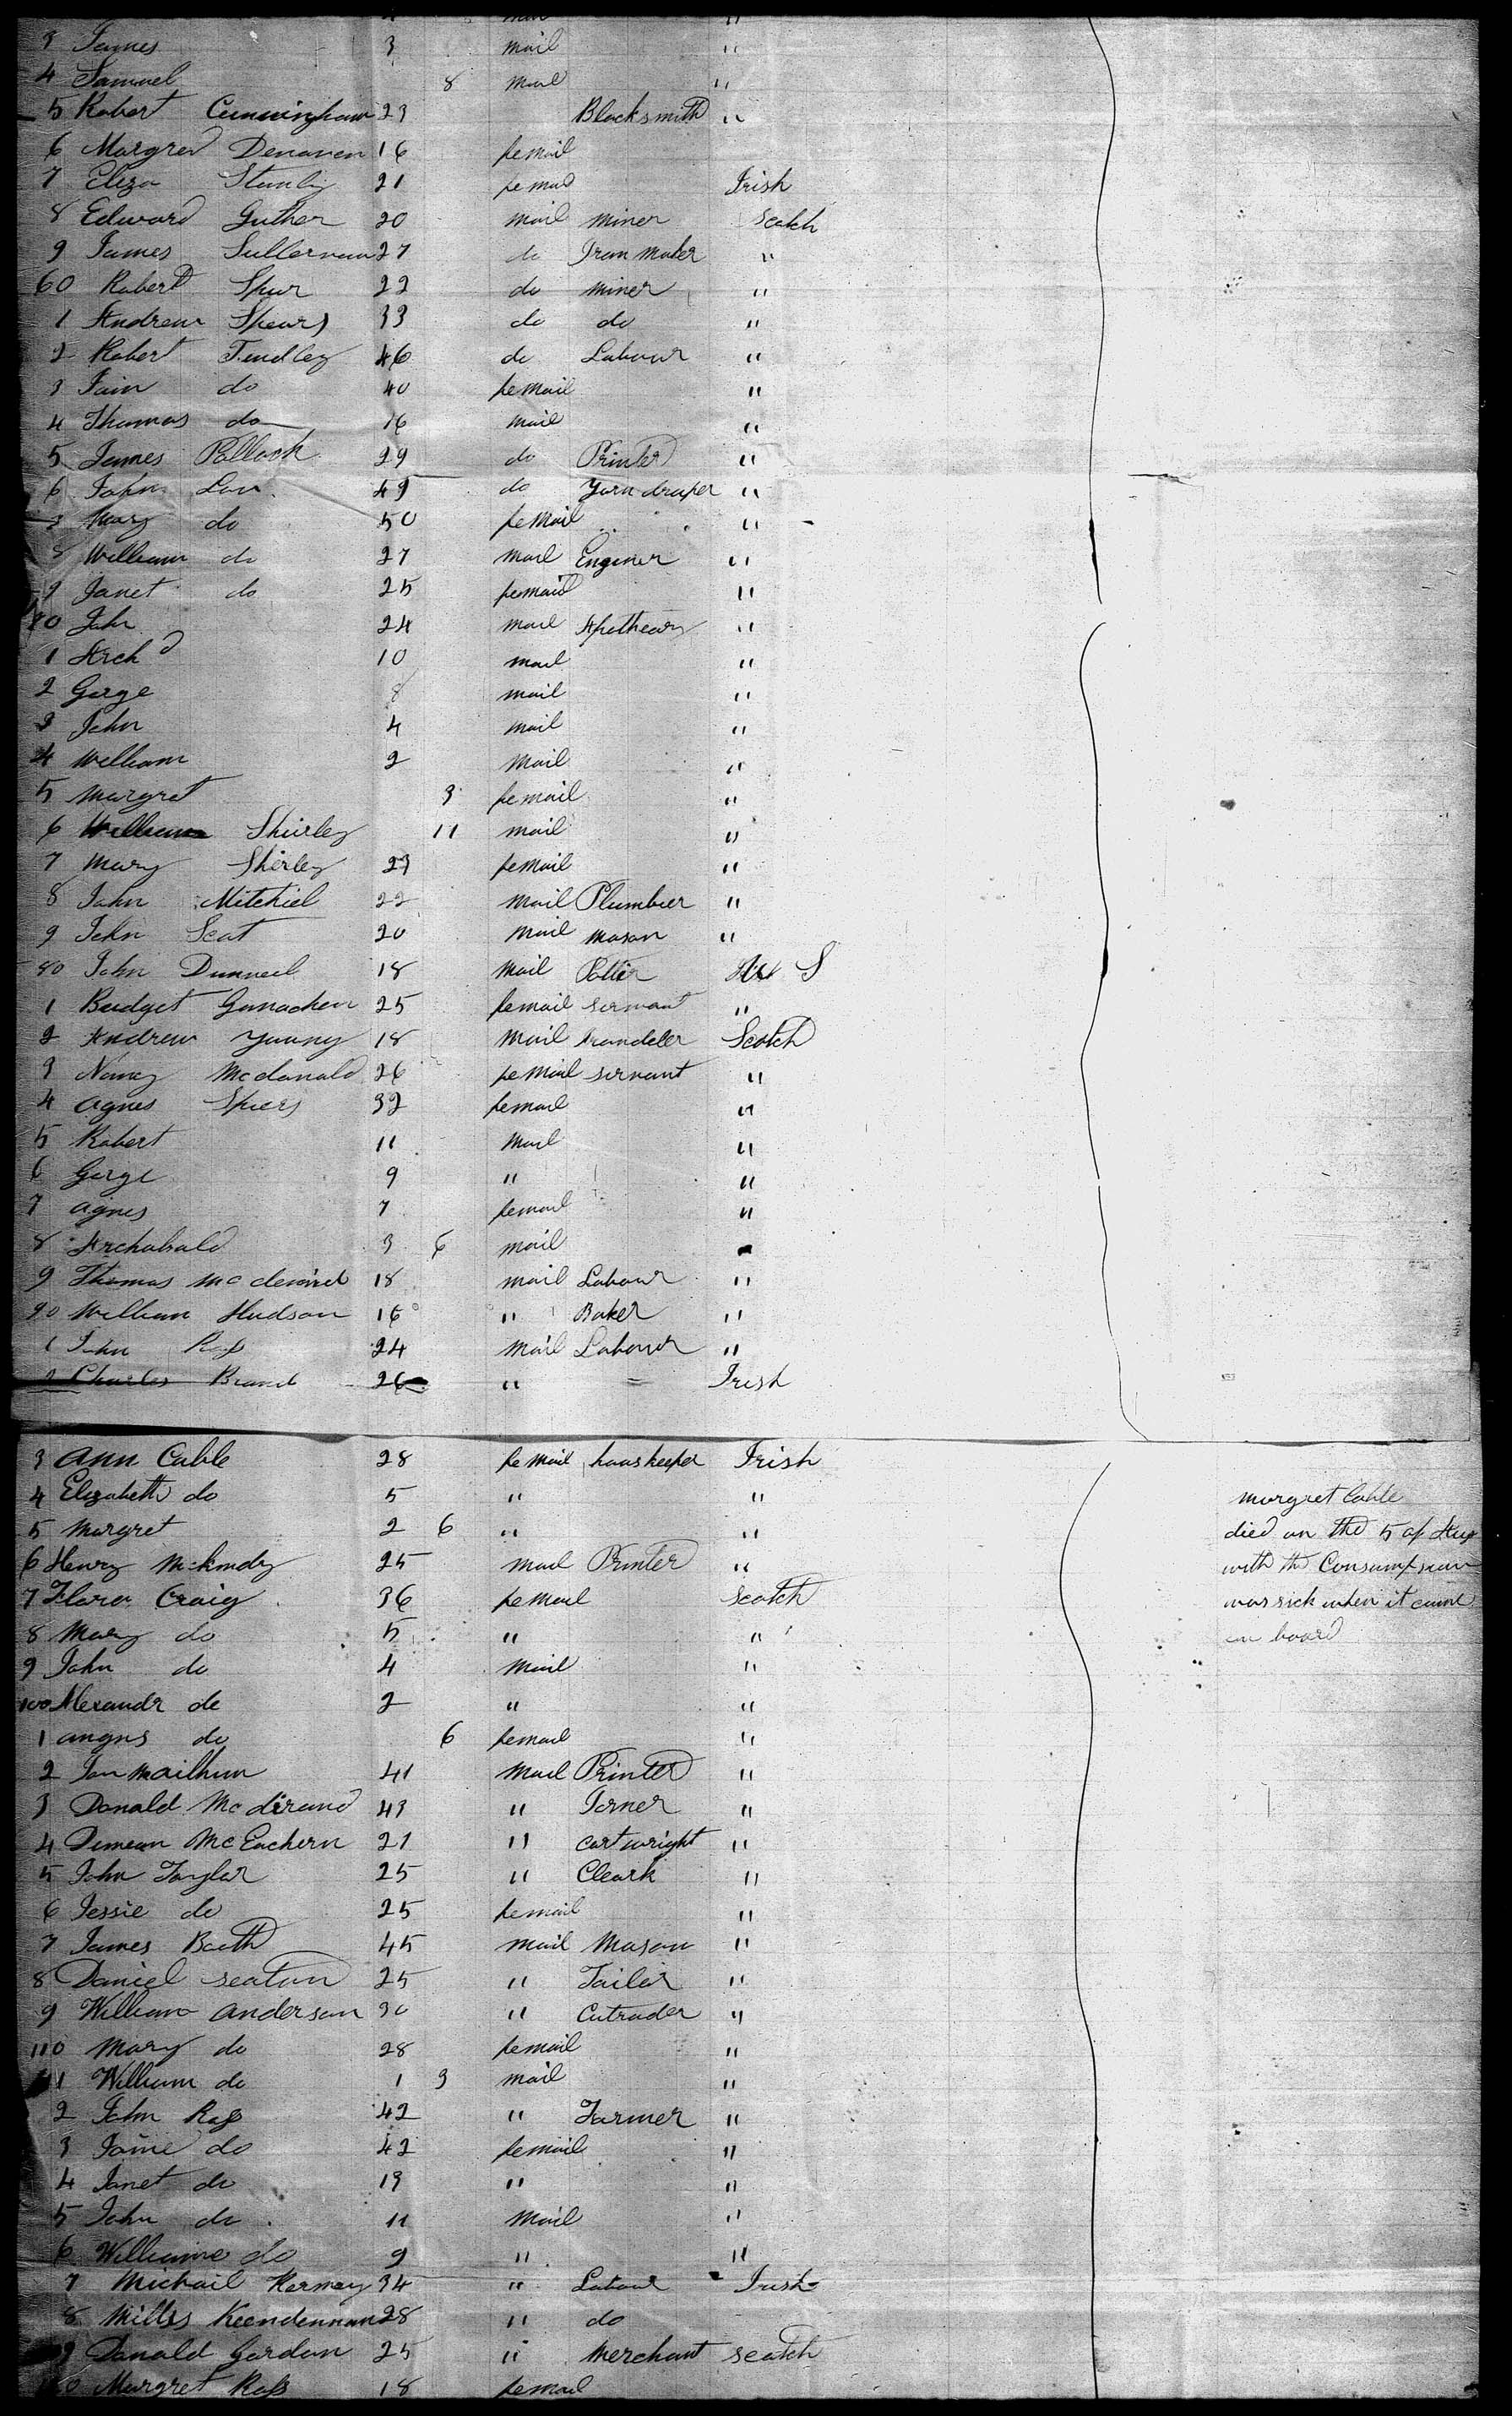 3 James 3 mail "
4 Samuel 8 mail "
5 Robert Cunningham 23 Blacksmith "
6 Margred Denanen 16 femail
7 Eliza Stanly 21 femail Irish
8 Edward Guther 20 mail miner Scotch
9 James 27 do Iron Maker "
60 Robert Spur 22 do miner "
1 Andrew Spears 33 do do "
2 Robert Tindley 46 do Labour "
3 Jain do 40 femail "
4 Thomas do 16 mail "
5 James Pollock 29 do Printer "
6 John Law 49 do Yarn draper "
Mary do 50 femail "
8 William do 27 mail Enginer "
9 Janet do 25 femail "
70 John 24 mail Apothecary "
1 Archd 10 mail "
2 Gorge 8 mail "
3 John 4 mail "
4 William 2 mail "
5 margret 3 femail "
6 William Shirley 11 mail "
7 Mary Shirley 23 femail "
8 John Mitchiel 22 mail Plumbier "
9 John Scot 20 mail mason "
80 John Dunneil 18 mail Potter S
1 Budget 25 femail servant "
2 Andrew Young 18 mail Scotch
3 Nancy Mcdonald 26 femail servant "
4 Agnes Spiers 32 femail "
5 Robert 11 mail "
6 Gorge 9 " "
7 Agnes 7 femail "
8 Archabald 3 6 mail
9 Thomas 18 mail Labour "
90 William Hudson 16 " Baker "
1 John Ross 24 mail Labour "
2 Charles Brand 26 " = Irish
3 Ann Cable 28 femail houskeeper Irish
4 Elizabeth do 5 " " margret Cable
5 Margret 2 6 " " died on the 5 of Aug
6 Henry Mckindy 25 mail Printer " with the Consumpsion
7 Flora Craig 36 femail scotch was sick when it came
8 Mary do 5 " " on board
9 John do 4 mail "
100 Alexandr do 2 " "
1 angns do 6 femail "
2 41 mail Printer "
3 Donald 43 " Torner "
4 Duncan McEachern 21 " cartwright "
5 John Taylor 25 " Cleark "
6 Jessie do 25 femail "
7 James Booth 45 mail Mason "
8 Daniel seaton 25 " Tailor "
9 William anderson 30 " "
110 Mary do 28 femail "
11 William do 1 3 mail "
2 John Ross 42 " Farmer "
3 Jaine do 42 femail "
4 Janet do 13 " "
5 John do 11 mail "
6 Williame do 9 " "
7 Michail 34 " Labour Irish
8 28 " do
9 Donald Gordon 25 " Merchant scotch
0 Margret Ross 18 femail